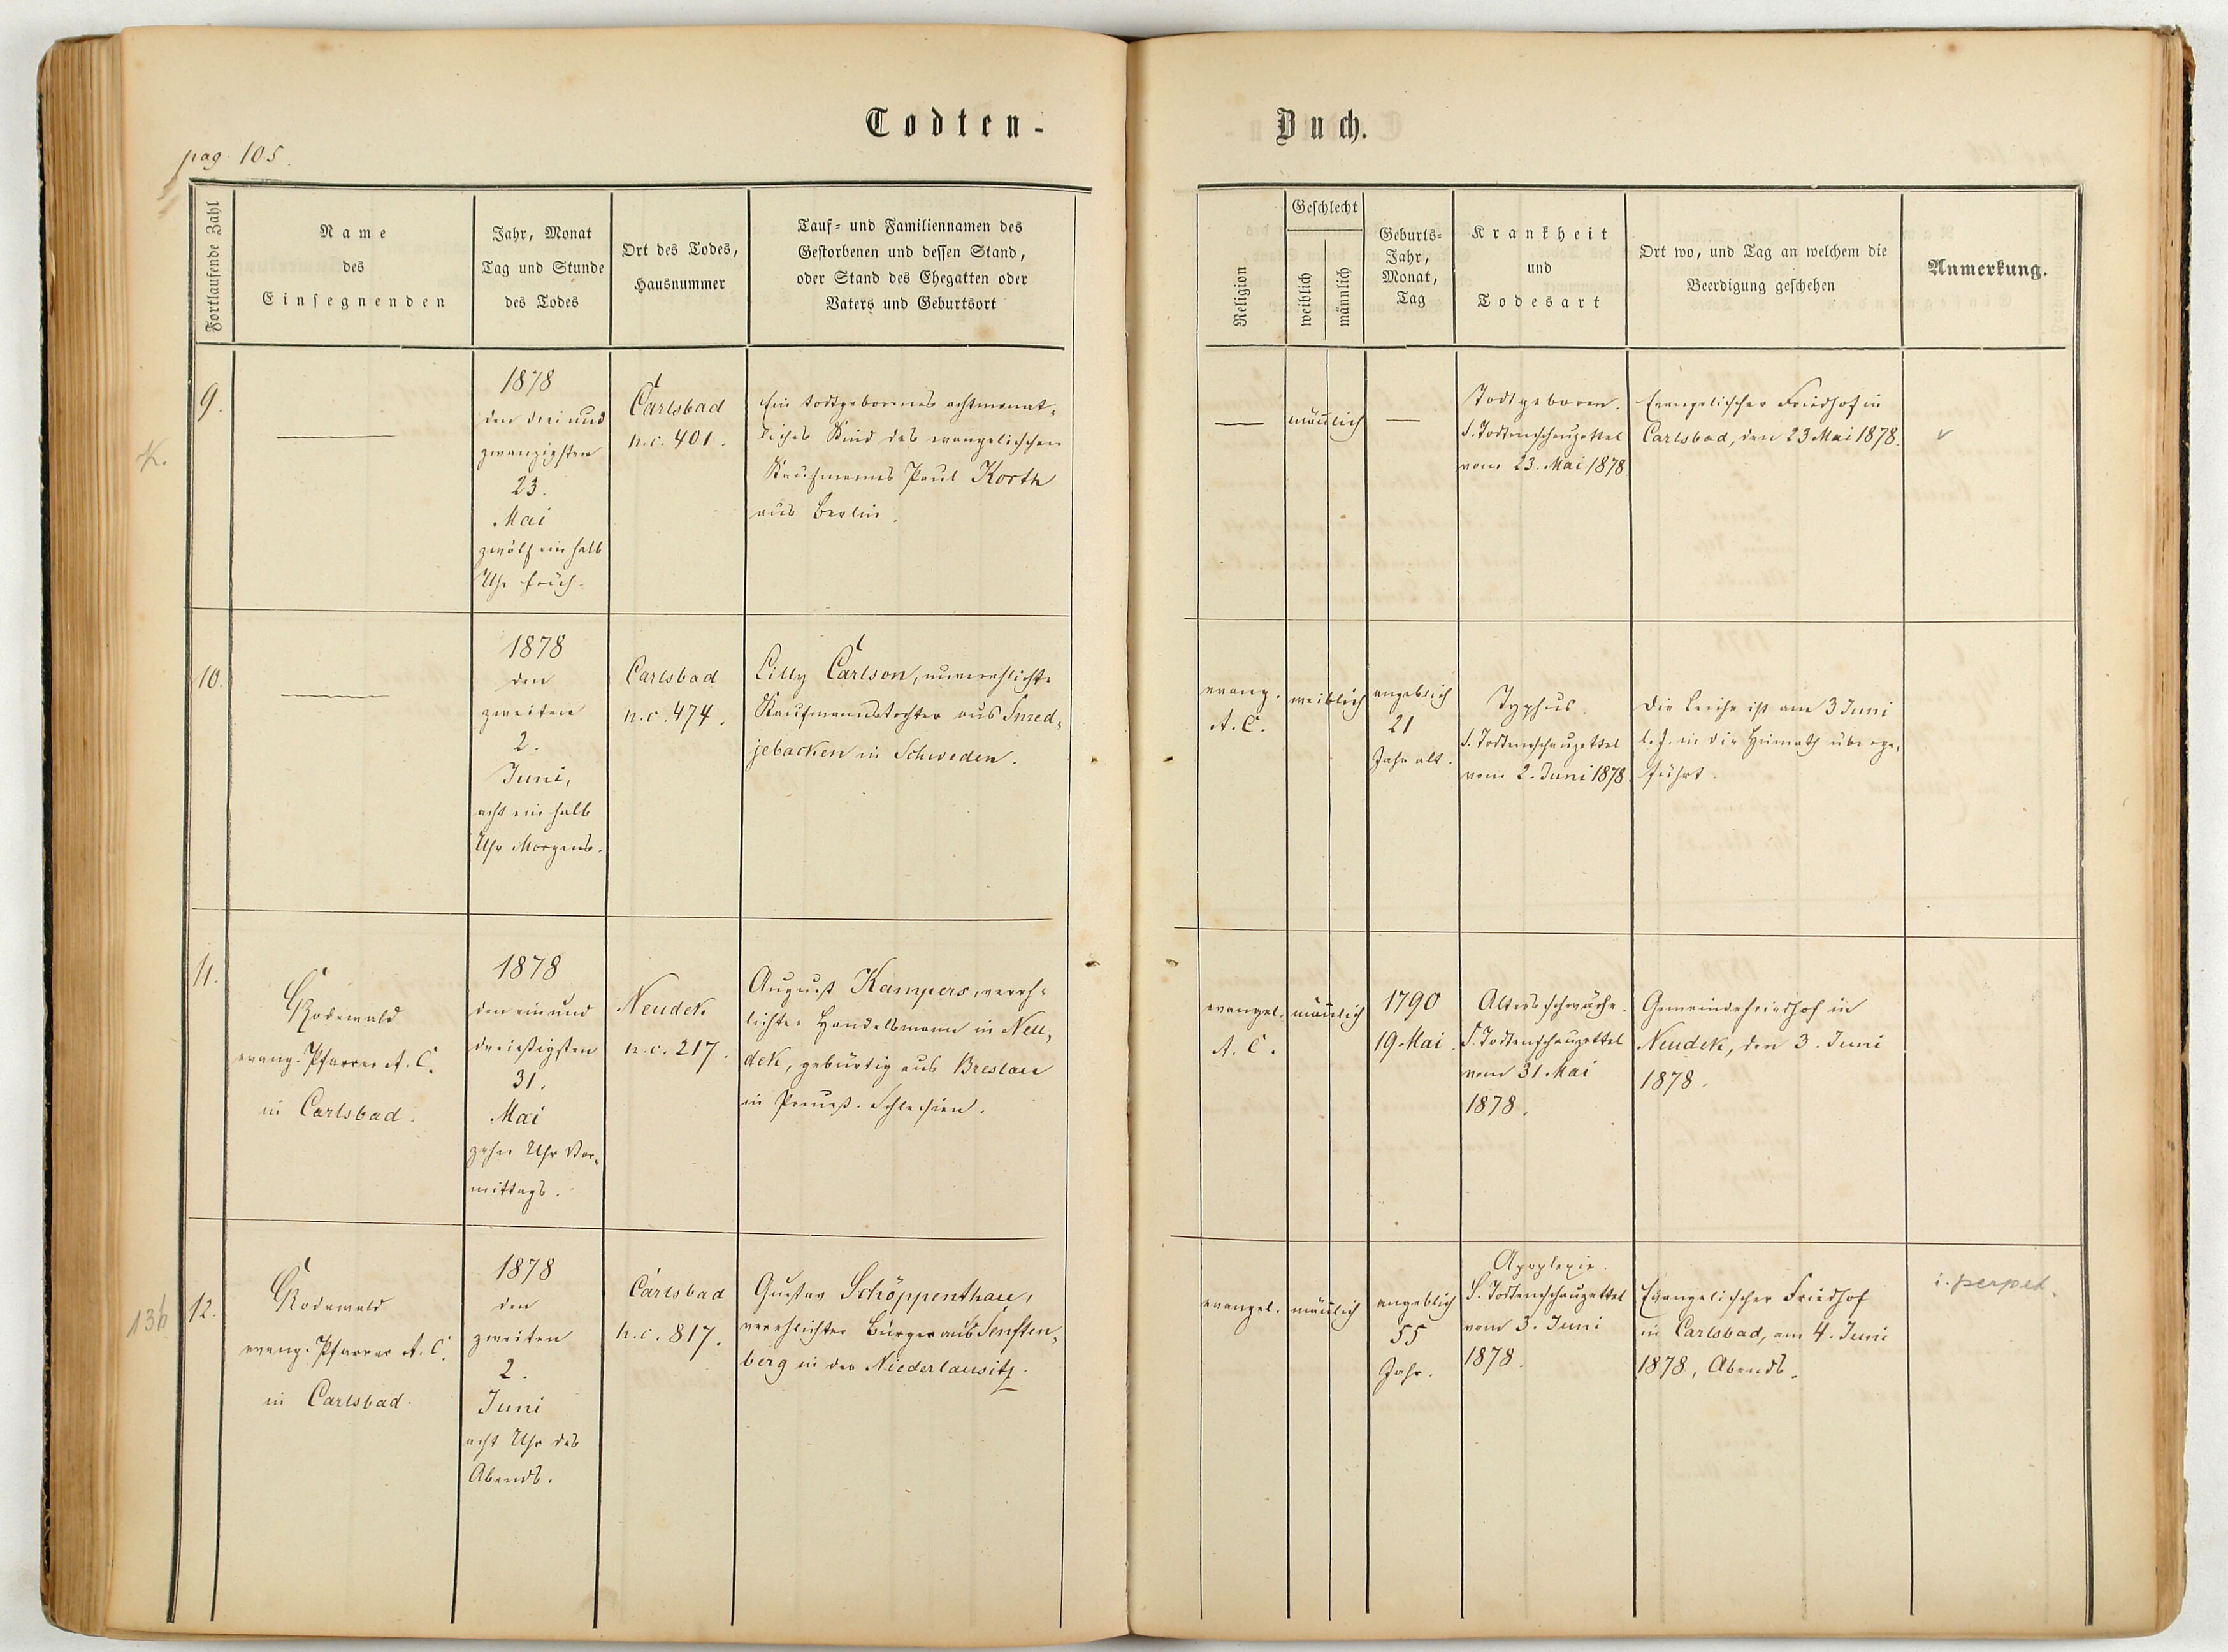 Todten-
Buch.
pag. 105.
Fortlaufende Zahl
Name
des
Einsegnenden
Jahr, Monat
Tag und Stunde
des Todes
Ort des Todes,
Hausnummer
Tauf- und Familiennamen des
Gestorbenen und dessen Stand,
oder Stand des Ehegatten oder
Vaters und Geburtsort
Religion
Geschlecht
weiblich
männlich
Geburts-
Jahr,
Monat,
Tag
Krankheit
und
Todesart
Ort wo, und Tag an welchem die
Beerdigung geschehen
Anmerkung.
K.
9.
1878
den drei und
zwanzigsten
23.
Mai
zwölf ein halb
Uhr früh.
Carlsbad
n.c. 401.
Ein todtgeborenes achtmonat-
liches Kind des evangelischen
Kaufmanns Paul Korth
aus Berlin.
männlich
Todtgeboren.
S. Todtenschauzettel
vom 23. Mai 1878
Evangelischer Friedhof in
Carlsbad, den 23 Mai 1878.
10.
1878
den
zweiten
2.
Juni,
acht ein halb
Uhr Morgens.
Carlsbad
n.c. 474.
Lilly Carlson, unverehlichte
Kaufmannstochter aus Smed-
jebacken in Schweden.
evang.
A.C.
weiblich
angeblich
21
Jahr alt.
Typhus.
S. Todtenschauzettel
vom 2. Juni 1878
Die Leiche ist am 3 Juni
l. J. in die Heimath überge-
führt.
11.
Rodewald
evang. Pfarrer A. C.
in Carlsbad.
1878
den ein und
dreißigsten
31.
Mai
zehn Uhr Vor-
mittags.
Neudek
n.c. 217.
August Kampers, vereh-
lichter Handelsmann in Neu-
dek, gebürtig aus Breslau
in Preuß. Schlesien.
evangel.
A. C.
männlich
1790
19. Mai
Altersschwäche.
S. Todtenschauzettel
vom 31 Mai
1878.
Gemeindefriedhof in
Neudek, den 3. Juni
1878.
136
12.
Rodewald
evang. Pfarrer A. C.
in Carlsbad.
1878
den
zweiten
2.
Juni
acht Uhr des
Abends.
Carlsbad
n.c. 817.
Gustav Schöppenthau,
verehlichter Bürger aus Senften-
berg in der Niederlausitz.
evangel.
männlich
angeblich
55
Jahr.
Apoplexie.
S. Todtenschauzettel
vom 3. Juni
1878.
Evangelischer Friedhof
in Carlsbad, am 4. Juni
1878, Abends.
i. perpet.